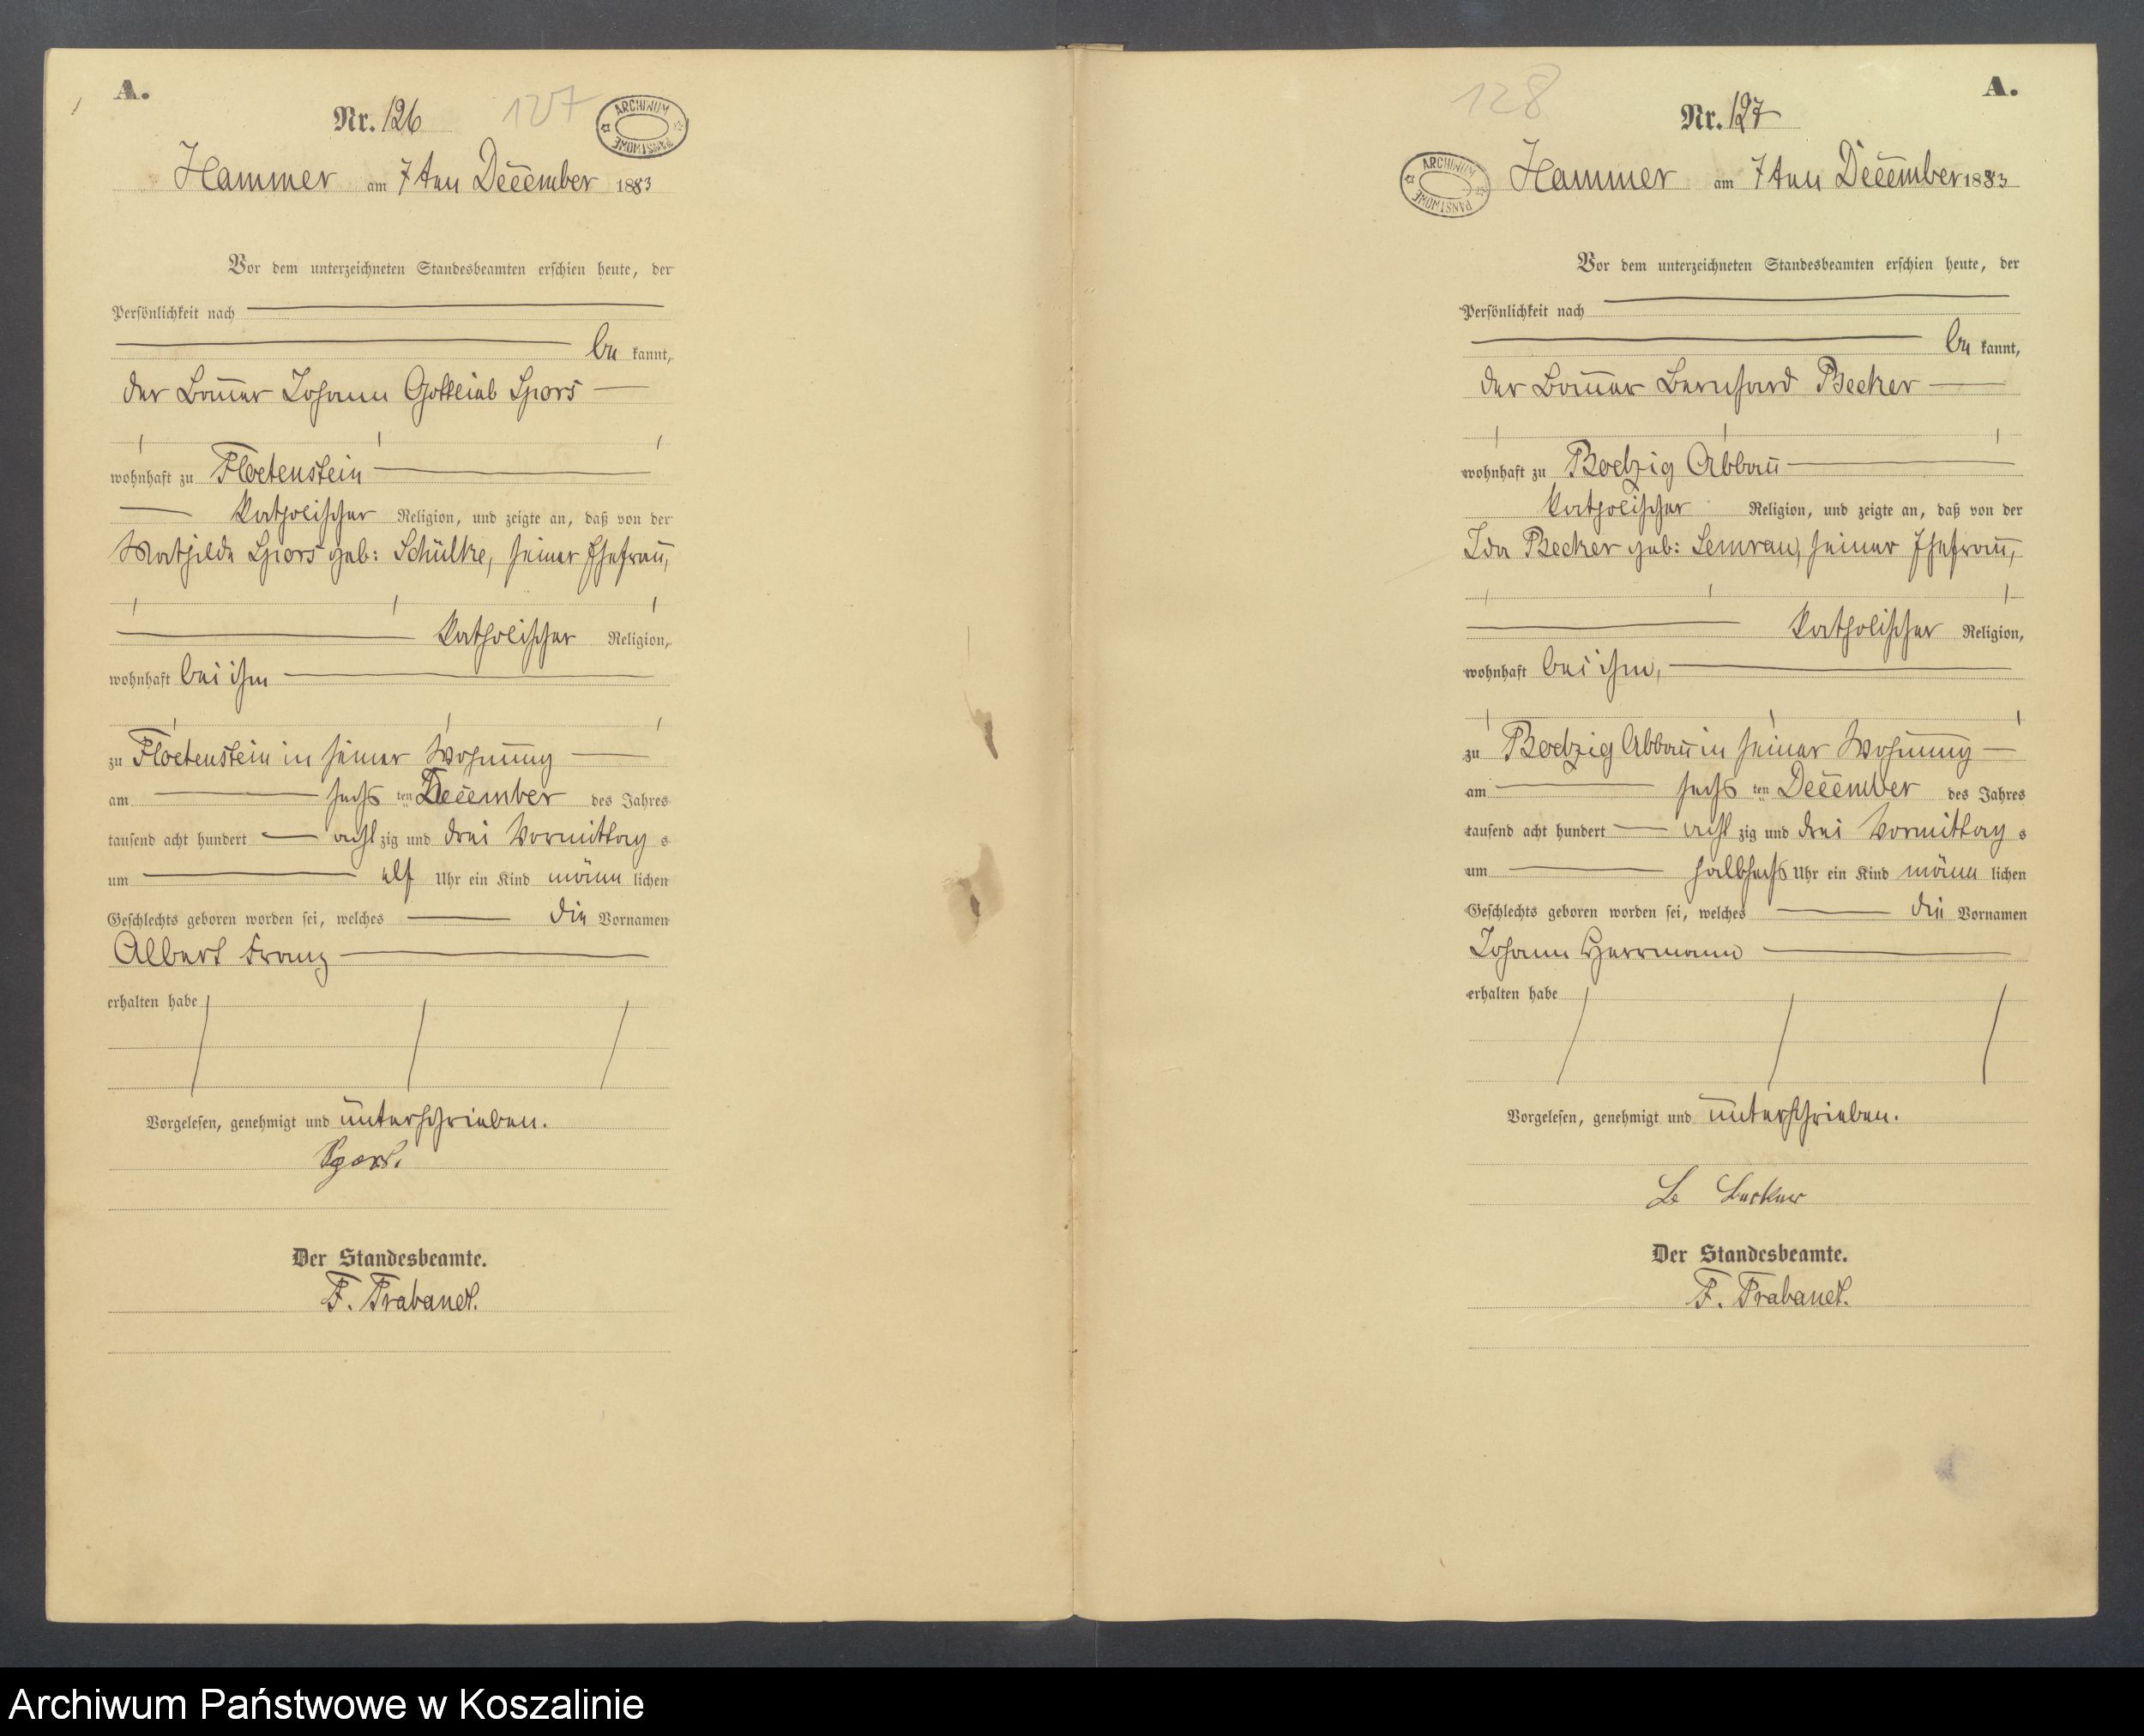 A.
Nr. 126
127
ARCHIWUM PAŃSTWOWE
Hammer am 7ten December 1883
Vor dem unterzeichneten Standesbeamten erschien heute, der
Persönlichkeit nach
be kannt,
der Bauer Johann Gottlieb Spors
wohnhaft zu Floetenstein
katholischer Religion, und zeigte an, daß von der
Mathilde Spors geb: Schülke, seiner Ehefrau,
katholischer Religion,
wohnhaft bei ihm
zu Floetenstein in seiner Wohnung
am sechs ten December des Jahres
tausend acht hundert acht zig und drei Vormittag s
um elf Uhr ein Kind männ lichen
Geschlechts geboren worden sei, welches die Vornamen
Albert Franz
erhalten habe
Vorgelesen, genehmigt und unterschrieben.
Spors.
Der Standesbeamte.
F. Trabandt.
A.
128
Nr. 127
ARCHIWUM PAŃSTWOWE
Hammer am 7ten December 1883
Vor dem unterzeichneten Standesbeamten erschien heute, der
Persönlichkeit nach
be kannt,
der Bauer Bernhard Becker
wohnhaft zu Abbau
katholischer Religion, und zeigte an, daß von der
Ida Becker geb: Semrau, seiner Ehefrau,
katholischer Religion,
wohnhaft bei ihm,
zu Abbau in seiner Wohnung
am sechs ten December des Jahres
tausend acht hundert acht zig und drei Vormittag s
um halbsechs Uhr ein Kind männ lichen
Geschlechts geboren worden sei, welches die Vornamen
Johann Herrmann
erhalten habe
Vorgelesen, genehmigt und unterschrieben.
B Becker
Der Standesbeamte.
F. Trabandt.
Archiwum Państwowe w Koszalinie